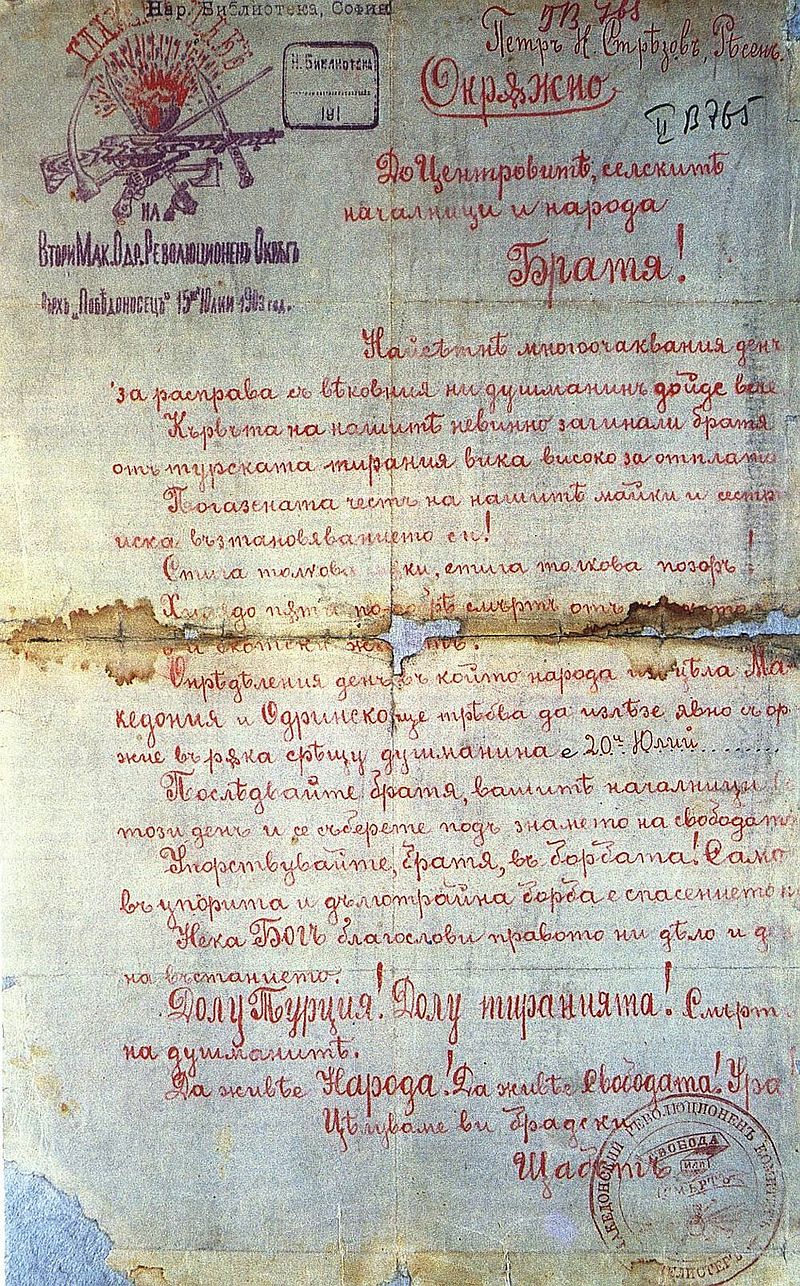 Нар. Библиотека, София
II В 765
Петръ Н. Стрѣзовъ, Рѣсенъ.
Н. Библиотека
191
Окрѫжно
II В 765
До Центровитѣ, селскитѣ
началници и народа
НА
Втори Мак. Одр. Революционенъ Окрѫгъ
Върхъ „Побѣдоносецъ" 15 Юлий 1903 год.
Братя!
Найсѣтнѣ многоочаквания день
за расправа съ вѣковния ни душманинъ дойде вече
Кървьта на нашитѣ невинно загинали братя
отъ турската тирания вика високо за отплата
Погазената честь на нашитѣ майки и сестри
иска възтановяванието си!
Стига толкова ки, стига толкова позоръ!
до пѫти по смърть отъ
скотски
Опрѣдѣления день, въ който народа изъ цѣла Ма-
кедония и Одринско ще трѣбва да излѣзе явно съ орѫ
жие въ рѫка срѣщу душманина е 20й Юлий
Послѣдвайте братя, вашитѣ началници
този день и се съберете подъ знамето на свободата
Упорствувайте, братя, въ борбата! Само
въ упорита и дълготрайна борба е спасението н
Нека БОГЪ благослови правото ни дѣло и де
на въстанието.
Долу Турция! Долу тиранията! Смърть
на душманитѣ.
Да живѣе Народа! Да живѣе Свободата! Ура
Цѣлуваме ви братски
Щабътъ
РЕВОЛЮЦИОНЕНЪ КОМИТЕТЪ
СВОБОДА
ИЛИ
СМЕРТЬ